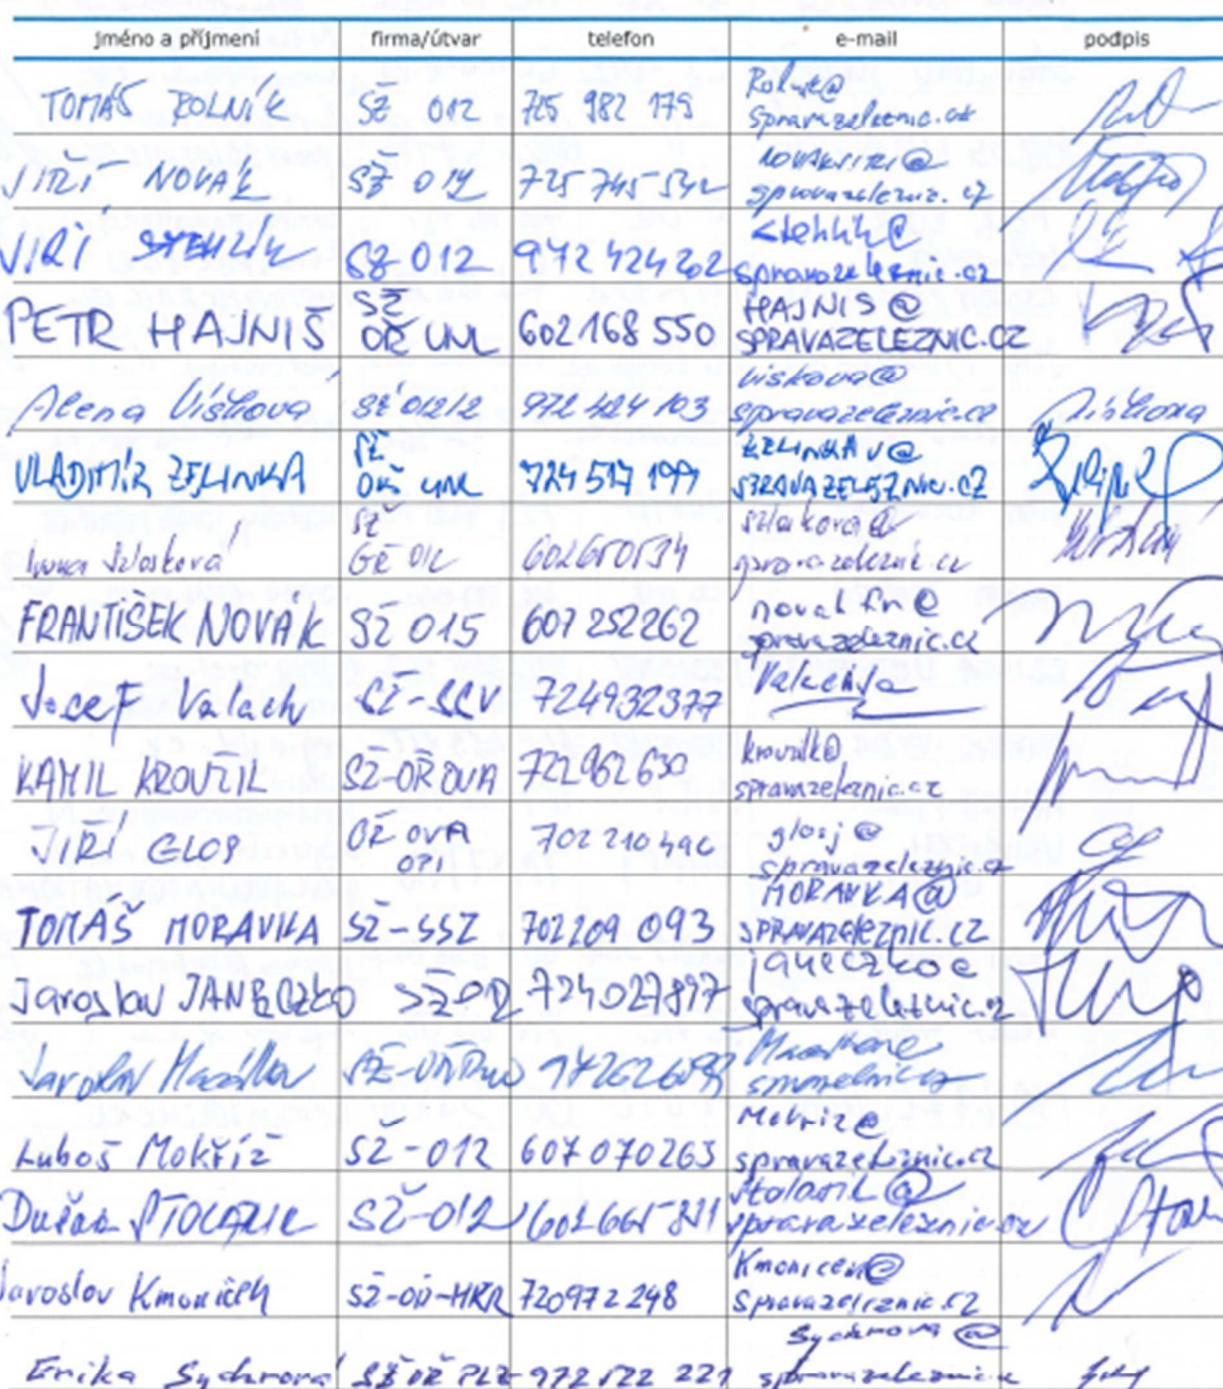 jméno a příjmení firma/útvar telefon e-mail podpis
TOMÁŠ ROLNÍK SŽ 012 725 982 179 Rolnik@
spravazeleznic.cz
JIŘÍ NOVÁK SŽ 012 725 745 542 novakjiri@
spravazeleznic.cz
JIŘÍ STEHLÍK SŽ 012 972 424 202 stehlik@
spravazeleznic.cz
PETR HAJNIŠ SŽ OŘ UNL 602 168 550 HAJNIS@
SPRAVAZELEZNIC.CZ
Alena Višková SŽ 012/2 972 424 103 viskova@
spravazeleznic.cz
VLADIMÍR ZELINKA SŽ OŘ UNL 724 517 199 ZELINKAV@
SPRAVAZELEZNIC.CZ
Szlaková SŽ GŘ 012 602650534 szlakova@
spravazeleznic.cz
FRANTIŠEK NOVÁK SŽ 015 607 252262 novakfr@
spravazeleznic.cz
Josef Valach SŽ-SSV 724932377
KAMIL KROUŽIL SŽ-OŘ OVA 722962630 krouzilk@
spravazeleznic.cz
JIŘÍ GLOS OŘ OVA 702 210 496 glosj@
spravazeleznic.cz
TOMÁŠ MORAVKA SŽ-SSZ 702209 093 MORAVKA@
SPRAVAZELEZNIC.CZ
Jaroslav JANECZKO 724027897 janeczko@
spravazeleznic.cz
Jaroslav
Luboš Mokříž SŽ-012 607 070263 Mokriz@
spravazeleznic.cz
Dušan STOLAŘIK SŽ-012 602 665 811 stolarik@
spravazeleznic.cz
Jaroslav Kmoníček SŽ-OŘ-HKR 720972248 Kmonicek@
spravazeleznic.cz
Erika Sychrová SŽ OŘ PLZ 972 522 221 Sychrova@
spravazeleznic.cz